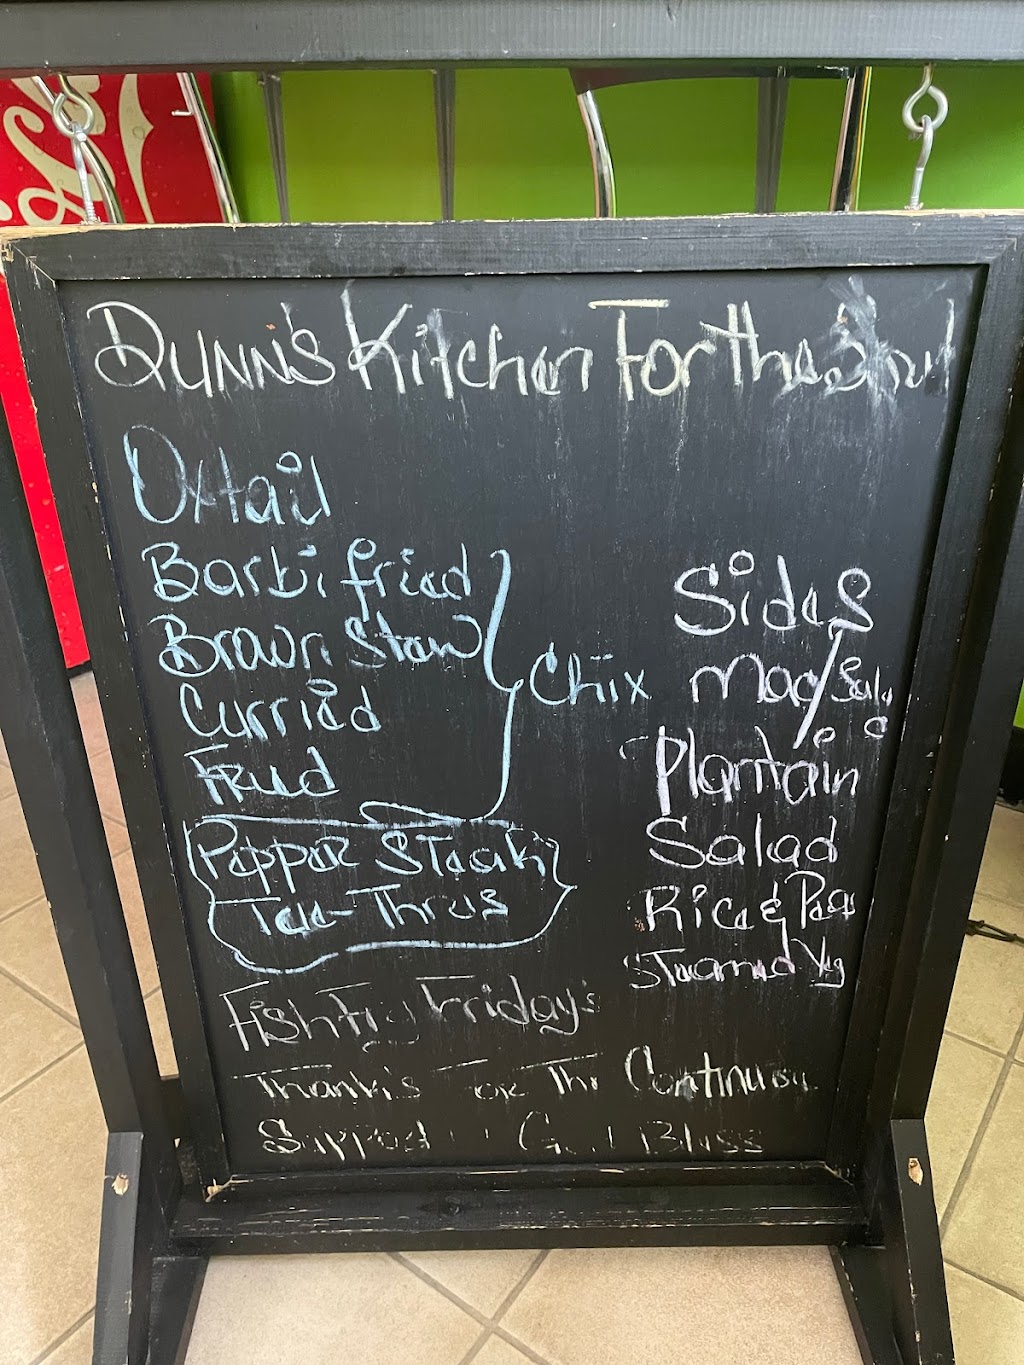 DUNN'S Kitchen For The Soul
Oxtail
Barbi fried
Brown Stew
Curried
Fried
Chix
Pepper Steak
Tue-Thrus
Fish Fry Friday's
Thank's For The Continuou
Support God Bless
Sides
Mac/Sala
Plantain
Salad
Rice & Peas
Steamed Veg